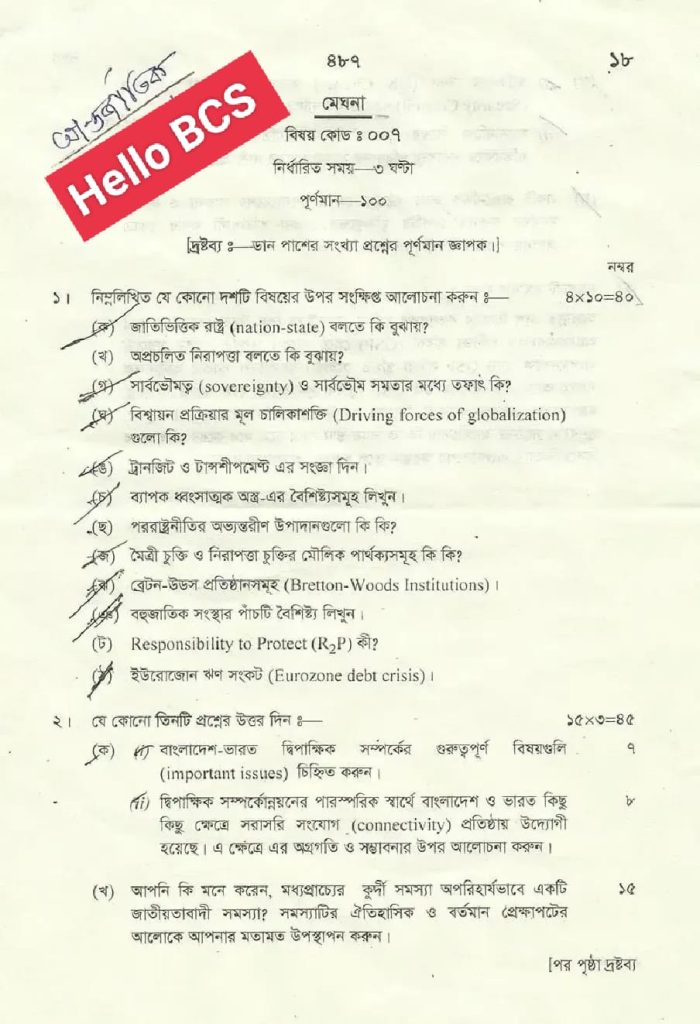 আন্তর্জাতিক
Hello BCS
৪৮৭
১৮
মেঘনা
বিষয় কোড ঃ ০০৭
নির্ধারিত সময়—৩ ঘণ্টা
পূর্ণমান—১০০
[দ্রষ্টব্য ঃ—ডান পাশের সংখ্যা প্রশ্নের পূর্ণমান জ্ঞাপক।]
নম্বর
১। নিম্নলিখিত যে কোনো দশটি বিষয়ের উপর সংক্ষিপ্ত আলোচনা করুন ঃ— ৪×১০=৪০
(ক) জাতিভিত্তিক রাষ্ট্র (nation-state) বলতে কি বুঝায়?
(খ) অপ্রচলিত নিরাপত্তা বলতে কি বুঝায়?
(গ) সার্বভৌমত্ব (sovereignty) ও সার্বভৌম সমতার মধ্যে তফাৎ কি?
(ঘ) বিশ্বায়ন প্রক্রিয়ার মূল চালিকাশক্তি (Driving forces of globalization)
গুলো কি?
(ঙ) ট্রানজিট ও টান্সশীপমেন্ট এর সংজ্ঞা দিন।
(চ) ব্যাপক ধ্বংসাত্মক অস্ত্র-এর বৈশিষ্ট্যসমূহ লিখুন।
(ছ) পররাষ্ট্রনীতির অভ্যন্তরীণ উপাদানগুলো কি কি?
(জ) মৈত্রী চুক্তি ও নিরাপত্তা চুক্তির মৌলিক পার্থক্যসমূহ কি কি?
(ঝ) ব্রেটন-উডস প্রতিষ্ঠানসমূহ (Bretton-Woods Institutions)।
(ঞ) বহুজাতিক সংস্থার পাঁচটি বৈশিষ্ট্য লিখুন।
(ট) Responsibility to Protect (R₂P) কী?
(ঠ) ইউরোজোন ঋণ সংকট (Eurozone debt crisis)।
২। যে কোনো তিনটি প্রশ্নের উত্তর দিন ঃ— ১৫×৩=৪৫
(ক) (i) বাংলাদেশ-ভারত দ্বিপাক্ষিক সম্পর্কের গুরুত্বপূর্ণ বিষয়গুলি ৭
(important issues) চিহ্নিত করুন।
(ii) দ্বিপাক্ষিক সম্পর্কোন্নয়নের পারস্পরিক স্বার্থে বাংলাদেশ ও ভারত কিছু ৮
কিছু ক্ষেত্রে সরাসরি সংযোগ (connectivity) প্রতিষ্ঠায় উদ্যোগী
হয়েছে। এ ক্ষেত্রে এর অগ্রগতি ও সম্ভাবনার উপর আলোচনা করুন।
(খ) আপনি কি মনে করেন, মধ্যপ্রাচ্যের কুর্দী সমস্যা অপরিহার্যভাবে একটি ১৫
জাতীয়তাবাদী সমস্যা? সমস্যাটির ঐতিহাসিক ও বর্তমান প্রেক্ষাপটের
আলোকে আপনার মতামত উপস্থাপন করুন।
[পর পৃষ্ঠা দ্রষ্টব্য